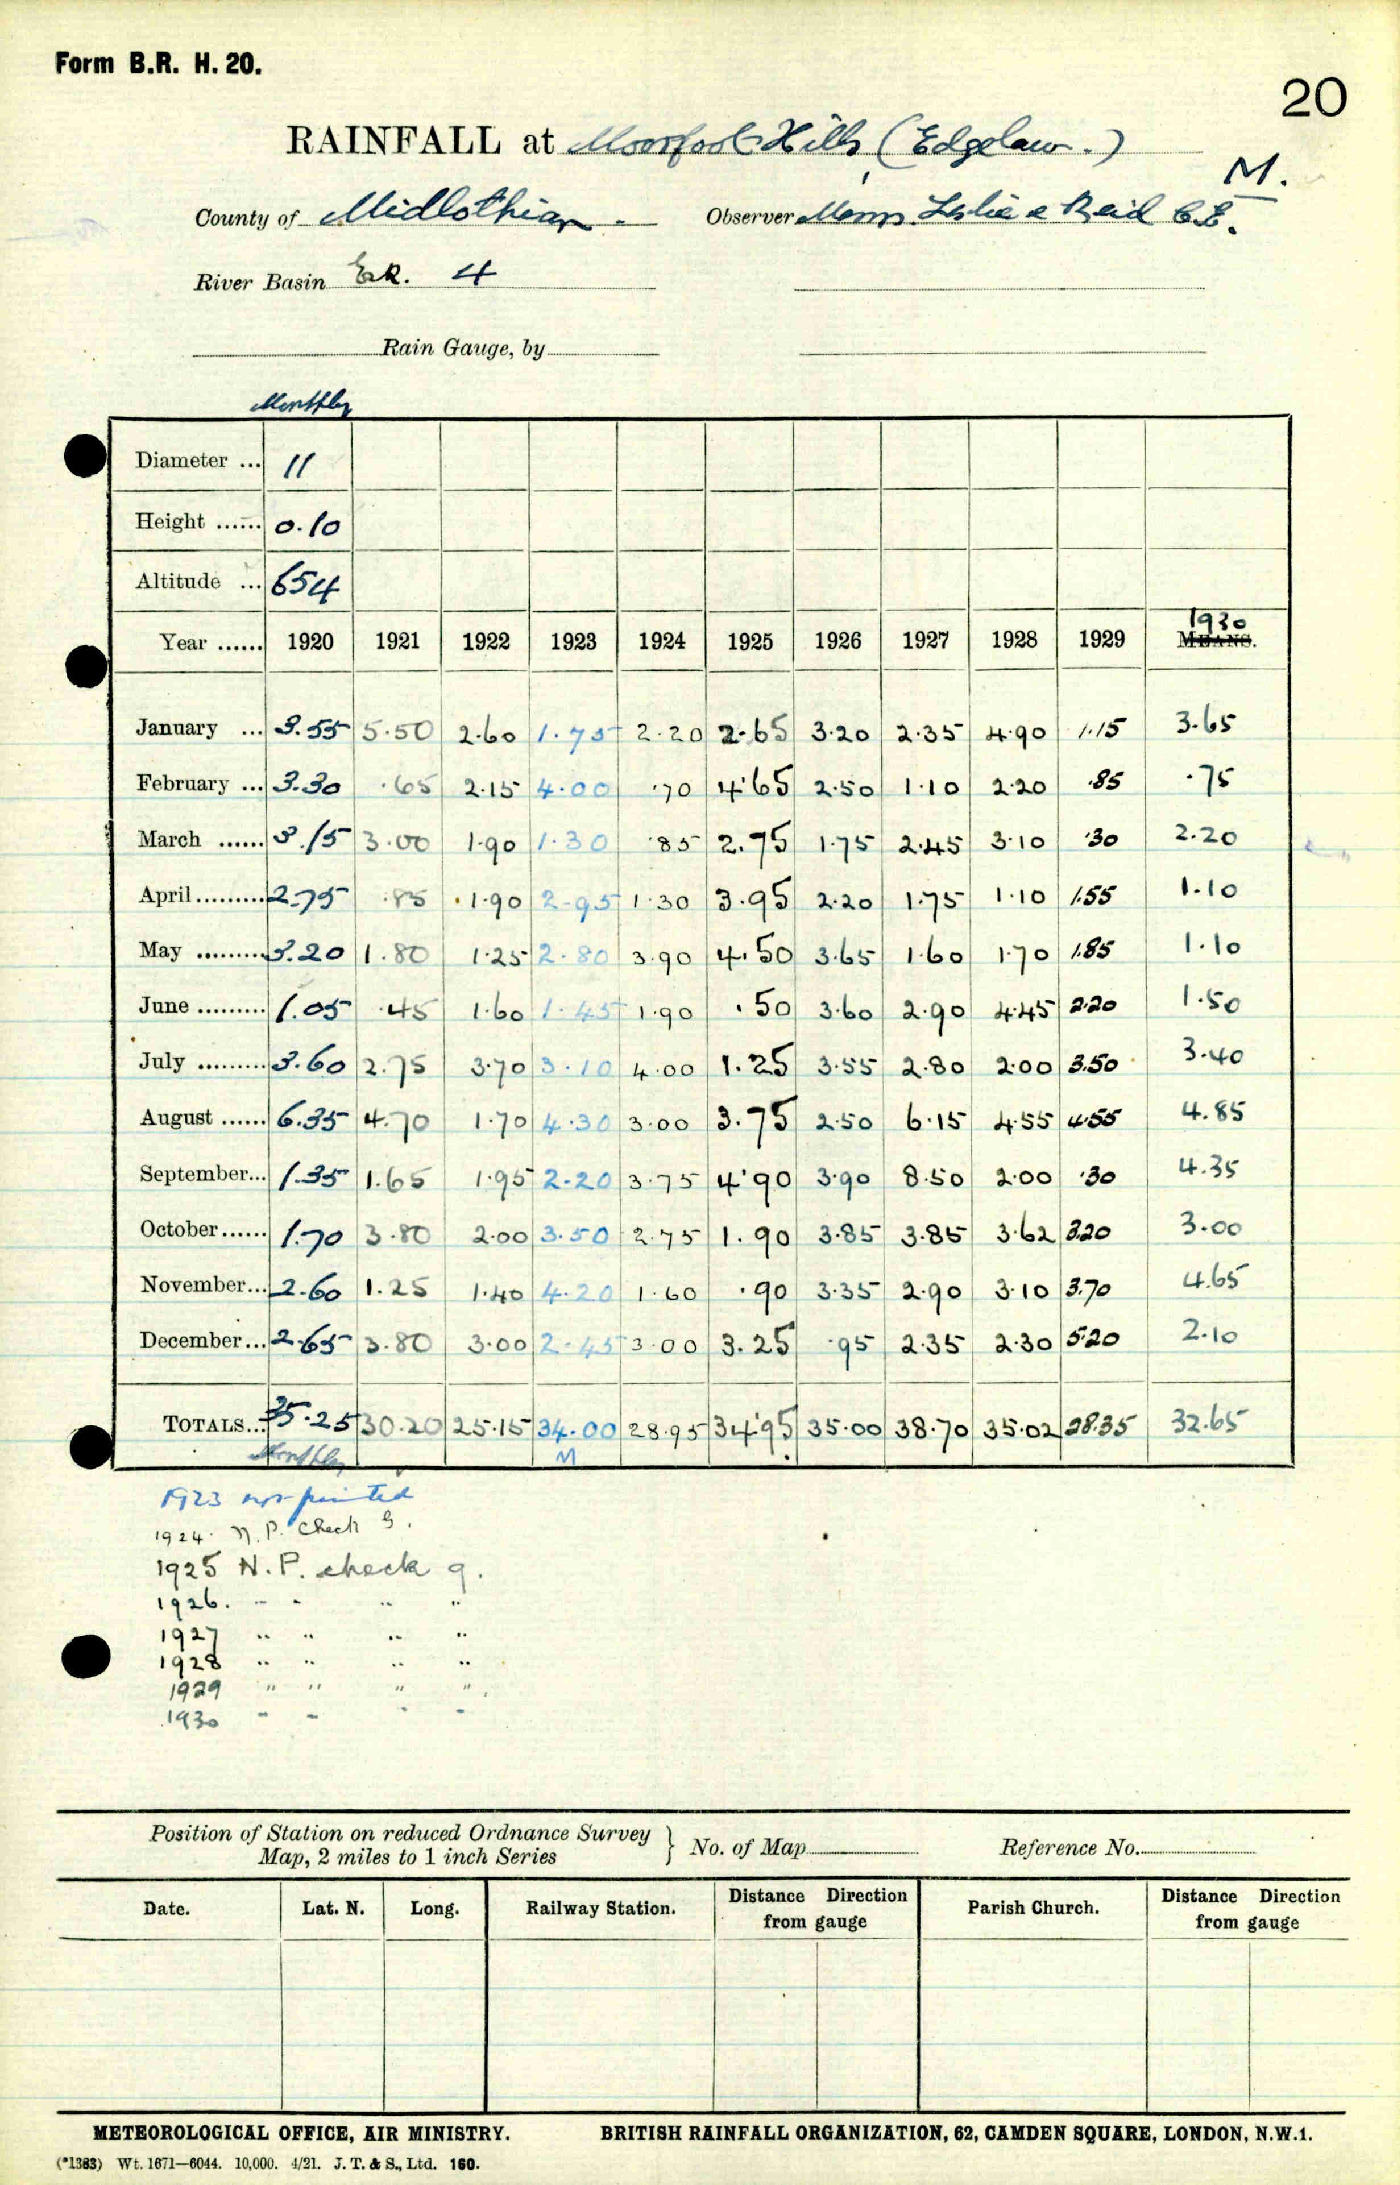 Form B.R. H. 20.
20
RAINFALL at Moorfoot Hills, (Edgelaw.)
M.
County of Midlothian. Observer Messrs. Leslie & Reid C.E.
River Basin 4
Rain Gauge, by
Monthly
Diameter ... 11
Height ...... 0.10
Altitude ... 654
1930
Year ...... 1920 1921 1922 1923 1924 1925 1926 1927 1928 1929 MEANS.
January ... 3.55 5.50 2.60 1.75 2.20 2.65 3.20 2.35 4.90 1.15 3.65
February ... 3.30 .65 2.15 4.00 .70 4.65 2.50 1.10 2.20 .85 .75
March ...... 3.15 3.00 1.90 1.30 .85 2.75 1.75 2.45 3.10 .30 2.20
April ......... 2.75 .85 1.90 2.95 1.30 3.95 2.20 1.75 1.10 1.55 1.10
May ......... 3.20 1.80 1.25 2.80 3.90 4.50 3.65 1.60 1.70 1.85 1.10
June ......... 1.05 .45 1.60 1.45 1.90 .50 3.60 2.90 4.45 2.20 1.50
July ......... 3.60 2.75 3.70 3.10 4.00 1.25 3.55 2.80 2.00 3.50 3.40
August ...... 6.35 4.70 1.70 4.30 3.00 3.75 2.50 6.15 4.55 4.55 4.85
September... 1.35 1.65 1.95 2.20 3.75 4.90 3.90 8.50 2.00 .30 4.35
October...... 1.70 3.80 2.00 3.50 2.75 1.90 3.85 3.85 3.62 3.20 3.00
November... 2.60 1.25 1.40 4.20 1.60 .90 3.35 2.90 3.10 3.70 4.65
December... 2.65 3.80 3.00 2.45 3.00 3.25 .95 2.35 2.30 5.20 2.10
TOTALS... 35.25 30.20 25.15 34.00 28.95 34.95 35.00 38.70 35.02 28.35 32.65
Monthly M
1923 not printed
1924. N.P. Check G.
1925 N.P. check g.
1926. " " " "
1927 " " " "
1928 " " " "
1929 " " " "
1930 " " " "
Position of Station on reduced Ordnance Survey
Map, 2 miles to 1 inch Series } No. of Map Reference No.
Date. Lat. N. Long. Railway Station. Distance Direction from gauge Parish Church. Distance Direction from gauge
METEOROLOGICAL OFFICE, AIR MINISTRY. BRITISH RAINFALL ORGANIZATION, 62, CAMDEN SQUARE, LONDON, N.W.1.
(*1383) Wt. 1671—6044. 10,000. 4/21. J. T. & S., Ltd. 160.